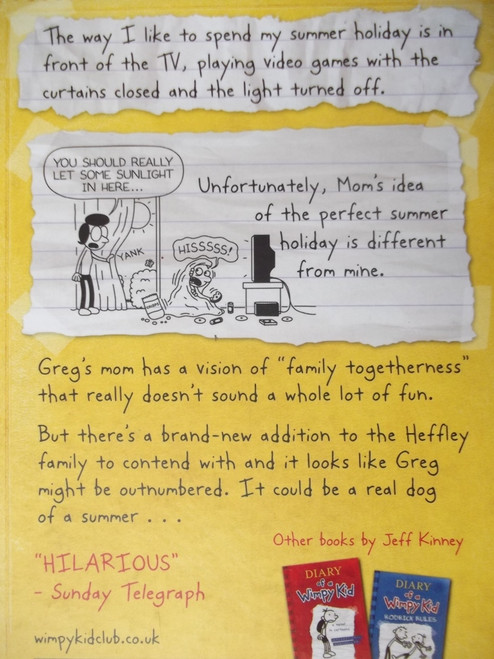 The way I like to spend my summer holiday is in
front of the TV, playing video games with the
curtains closed and the light turned off.
YOU SHOULD REALLY
LET SOME SUNLIGHT
IN HERE...
YANK
HISSSSS!
Unfortunately, Mom's idea
of the perfect summer
holiday is different
from mine.
Greg's mom has a vision of "family togetherness"
that really doesn't sound a whole lot of fun.
But there's a brand-new addition to the Heffley
family to contend with and it looks like Greg
might be outnumbered. It could be a real dog
of a summer . . .
Other books by Jeff Kinney
"HILARIOUS"
- Sunday Telegraph
wimpykidclub.co.uk
DIARY
of a
Wimpy Kid
DIARY
of a
Wimpy Kid
RODRICK RULES